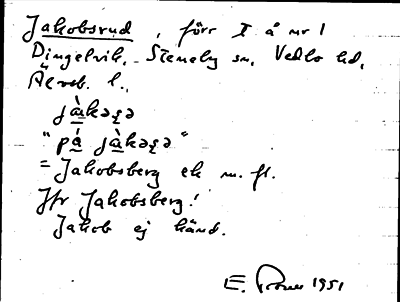 Jakobsrud, förr I å nr 1
Dingelvik, Steneby sn, Vedbo hd,
Älvsb. l.
jàkəʂə
"på jàkəʂə"
= Jakobsberg ek m. fl.
Jfr Jakobsberg!
Jakob ej känd.
E. 1951